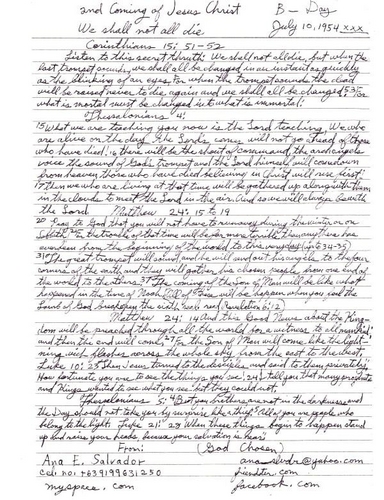 2nd Coming of Jesus Christ B - Day
We shall not all die July 10, 1954 xxx
Corinthians 15: 51-52
Listen to this secret truth: We shall not all die, but when the
last trumpet sounds, we shall all be changed in an instant as quickly
as the blinking of an eye. For when the trumpet sounds the dead
will be raised never to die again and we shall all be changed 53 For
what is mortal must be changed into what is immortal:
Thessalonians 4:
15 What we are teaching you now is the Lord teaching. We who
are alive on the day the Lord's comes will not go ahead of those
who have died: is there will be the shout of command, the archangel's
voice the sound of God's trumpet and the Lord himself will come down
from heaven those who have died believing in Christ will rise first:
17 Then we who are living at that time will be gathered up along with them
in the clouds to meet the Lord in the air. And so we will always be with
the Lord Matthew 24: 15 to 19
20 to God that you will not have to run away during the winter or on
the trouble at that time will be far more terrible than any there has
ever been from the beginning of the world to this very day
31 The great trumpet will sound and he will send out his angels to the four
corners of the earth and they will gather his chosen people from one end of
the world to the other 37 The coming of the Son of Man will be like what
happened in the time of Noah.
Matthew 24: 14 And this Good News about the King-
dom will be preached through all the world for a witness to all mankind
and then the end will come 27 For the Son of Man will come like the light-
ning which flashes across the whole sky from the east to the west,
Luke 10: 23 Then Jesus turned to the disciples and said to them privately
How fortunate you are to see the things you see 24 I tell you that many prophets
and Kings wanted to see what you see, but they could not,
Thessalonians 5: 4 But you brothers are not in the darkness and
the Day should not take you by surprise like a thief All of you are people who
belong to the light. Luke 21: 28 When these things begin to happen stand
up and raise your heads, because your salvation is near:
From: (God Chosen)
Ana E. Salvador
Cell no. +639199631250 friendster.com
myspace.com facebook.com